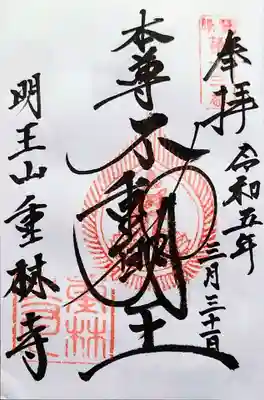 奉拝
令和五年
三月三十一日
本尊
不動明王
明王山 重林寺